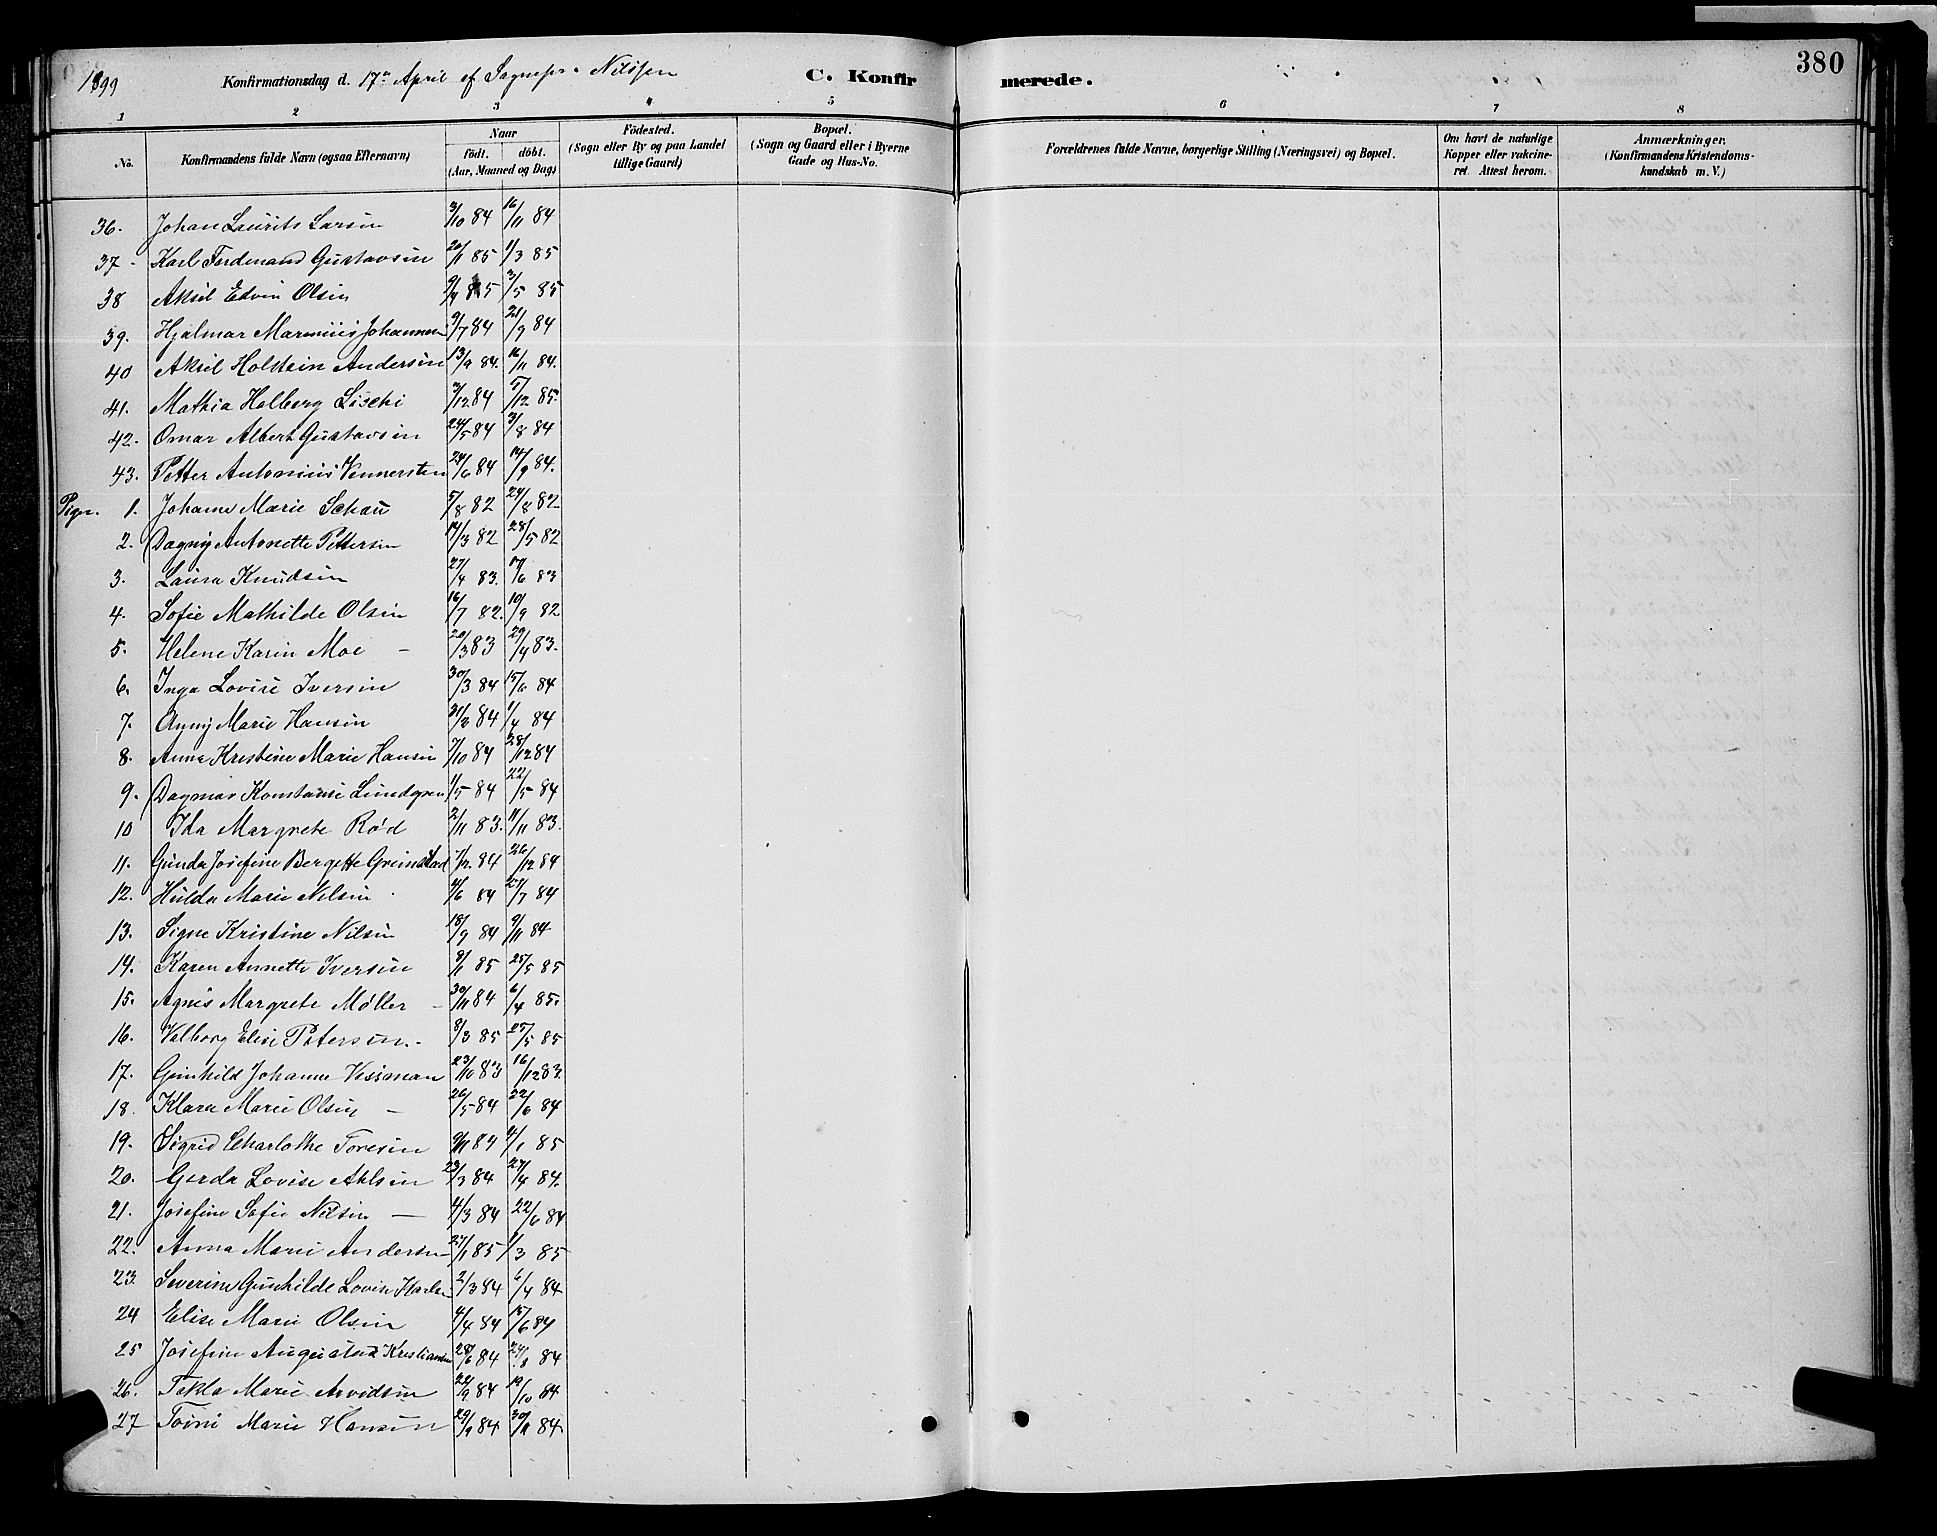 1899 Konfirmationsdag d. 17de April af Sognepr. Nilssen C. Konfirmerede. 380
1 2 3 4 5 6 7 8
No. Konfirmandens fulde Navn (ogsaa Efternavn) Naar født. døbt. (Aar, Maaned og Dag) Födested. (Sogn eller By og paa Landet tillige Gaard) Bopæl. (Sogn og Gaard eller i Byerne Gade og Hus-No. Forældrenes fulde Navne, borgerlige Stilling (Næringsvei) og Bopæl. Om havt de naturlige Kopper eller vakcineret. Attest herom. Anmærkninger. (Konfirmandens Kristendomskundskab m. V.)
36. Johan Laurits Larsen 3/10 84 16/11 84
37. Karl Ferdenand Gustavsen 20/1 85 1/3 85
38 Aksel Edvin Olsen 3/5 85
39. Hjalmar Marinius Johannesen 9/7 84 21/9 84
40 Aksel Holstein Andersen 13/9 84. 16/11 84.
41. Mathia Holberg 3/12 84 5/12 85.
42. Omar Albert Gustavsen 24/5 84 3/8 84
43. Petter Antonius Vennersten 24/6 84 14/9 84.
Piger. 1. Johanne Marie Schau 5/8 82 24/8 82
2. Dagny Antonette Pettersen 14/3 82 28/5 82
3. Laura Knudsen 27/4 83. 17/6 83
4. Sofie Mathilde Olsen 16/7 82. 10/9 82
5. Helene Karin Moe – 20/3 83 29/4 83.
6. Inga Lovise Iversen 30/3 84 15/6 84
7. Anny Marie Hansen 1/4 84
8. Anna Kristine Marie Hansen 7/10 84 28/12 84
9. Dagmar Konstanse Lundgren 1/5 84 22/5 84
10 Ida Margrete Rød 2/11 83. 11/11 83.
11. Gunda Josefine Bergette Greinstad 7/12 84 26/12 84
12. Hulda Marie Nilsen 4/6 84 27/7 84
13. Signe Kristine Nilsen 18/9 84 9/11 84
14. Karen Annette Iversen 9/1 85 25/5 85
15. Agnes Margrete Møller – 30/11 84 6/4 85.
16. Valborg Elise Petersen. 8/3 85 25/5 85
17. Gunhild Johanne Vesman 23/10 83 16/12 83.
18. Klara Marie Olsen – 26/5 84 22/6 84
19. Sigrid Charlothe Toresen 9/11 84 4/1 85
20. Gerda Lovise Ahlsen 23/3 84 27/4 84.
21. Josefine Sofie Nilsen – 4/3 84 22/6 84
22. Anna Marie Andersen 27/1 85 1/3 85
23. Severine Gunhilde Lovise Karlsen 2/3 84 6/4 84
24 Elise Marie Olsen 4/4 84 15/6 84
25 Josefine Augusta Kristiansen 28/6 84 24/8 84
26. Tekla Marie Arvidsen 22/9 84 19/10 84
27 Toini Marie Hansen 29/9 84 30/11 84